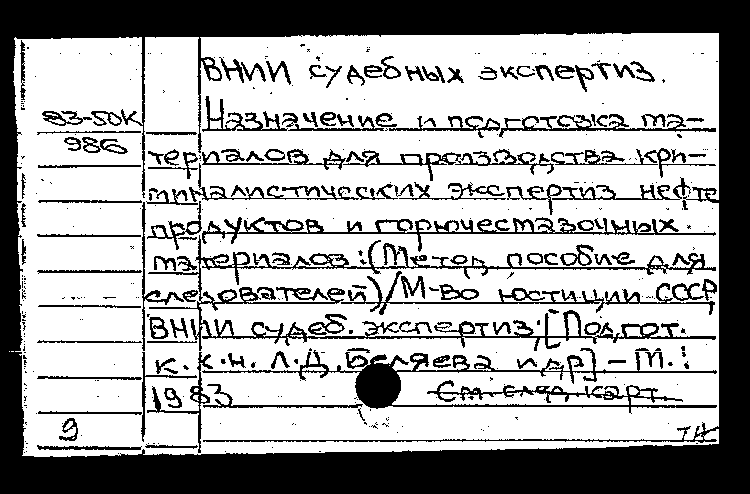 ВНИИ судебных экспертиз.
83-50К
Назначение и подготовка ма-
986
териалов для производства кри-
миналистических экспертиз нефте
продуктов и горючесмазочных
материалов: (Метод. пособие для
следователей)/М-во юстиции СССР,
ВНИИ судеб. экспертиз; [Подгот.
к.х.н. Л.Д. Беляева и др]. - М.:
1983
См. след. карт.
9